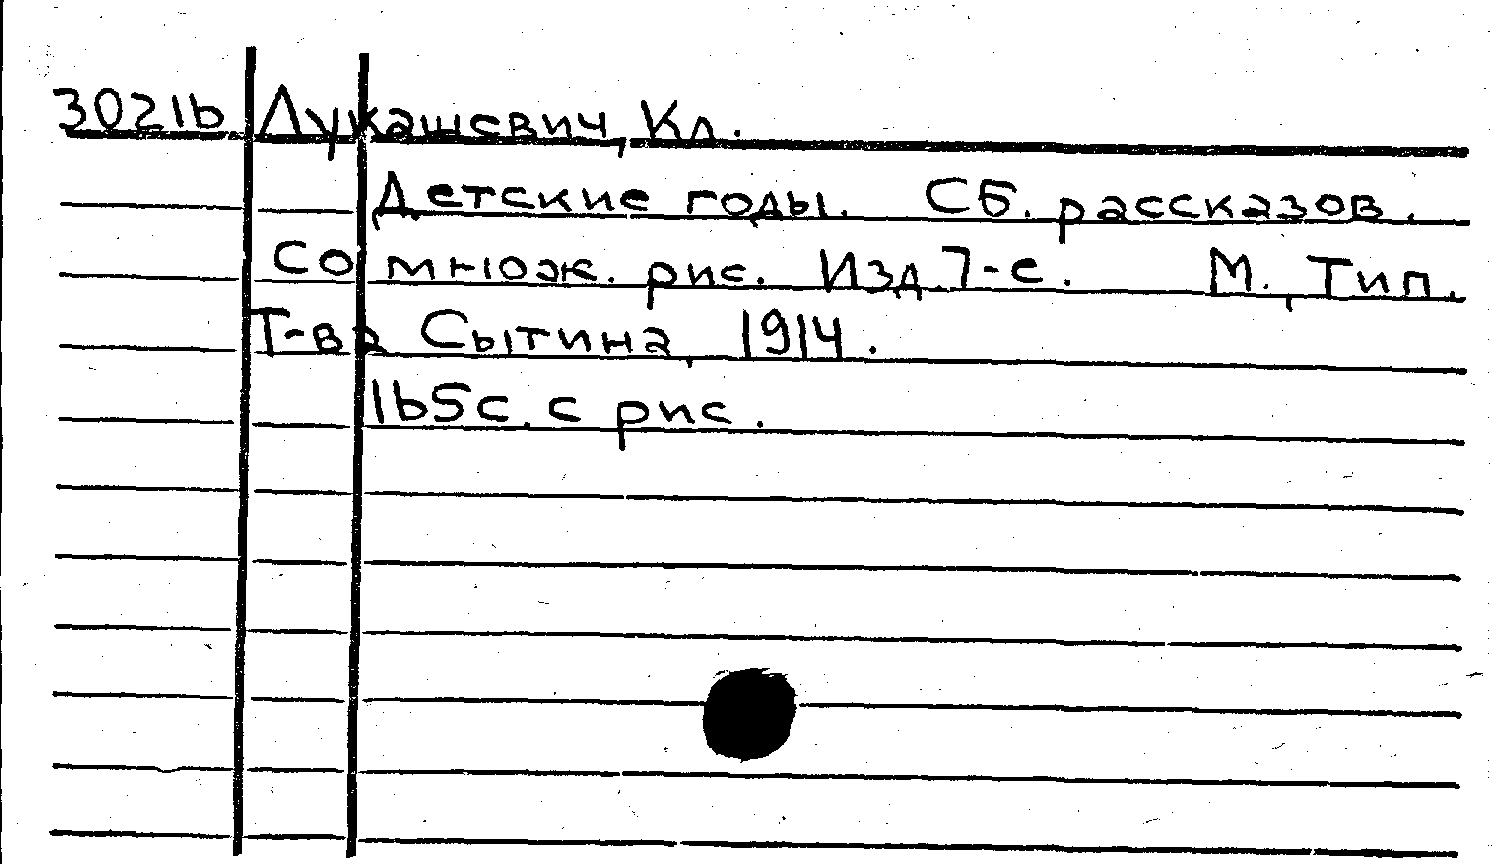 30216 Лукашевич, Кл.
Детские годы. Сб. рассказов.
Со множ. рис. Изд. 7-е. М., Тип.
Т-ва Сытина, 1914.
165с. с рис.